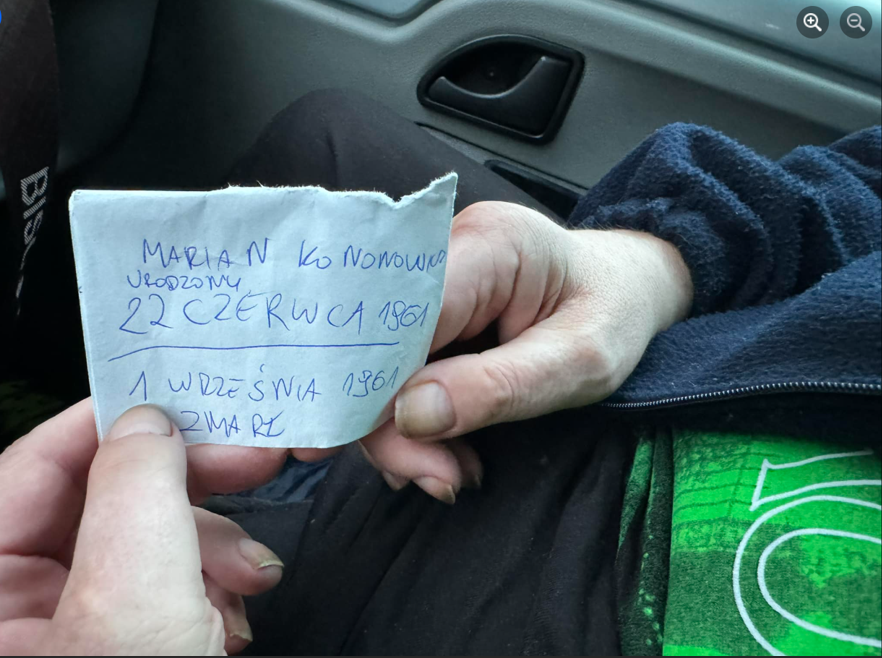 MARIAN KONONOWICZ
URODZONY
22 CZERWCA 1961
1 WRZEŚNIA 1961
ZMARŁ